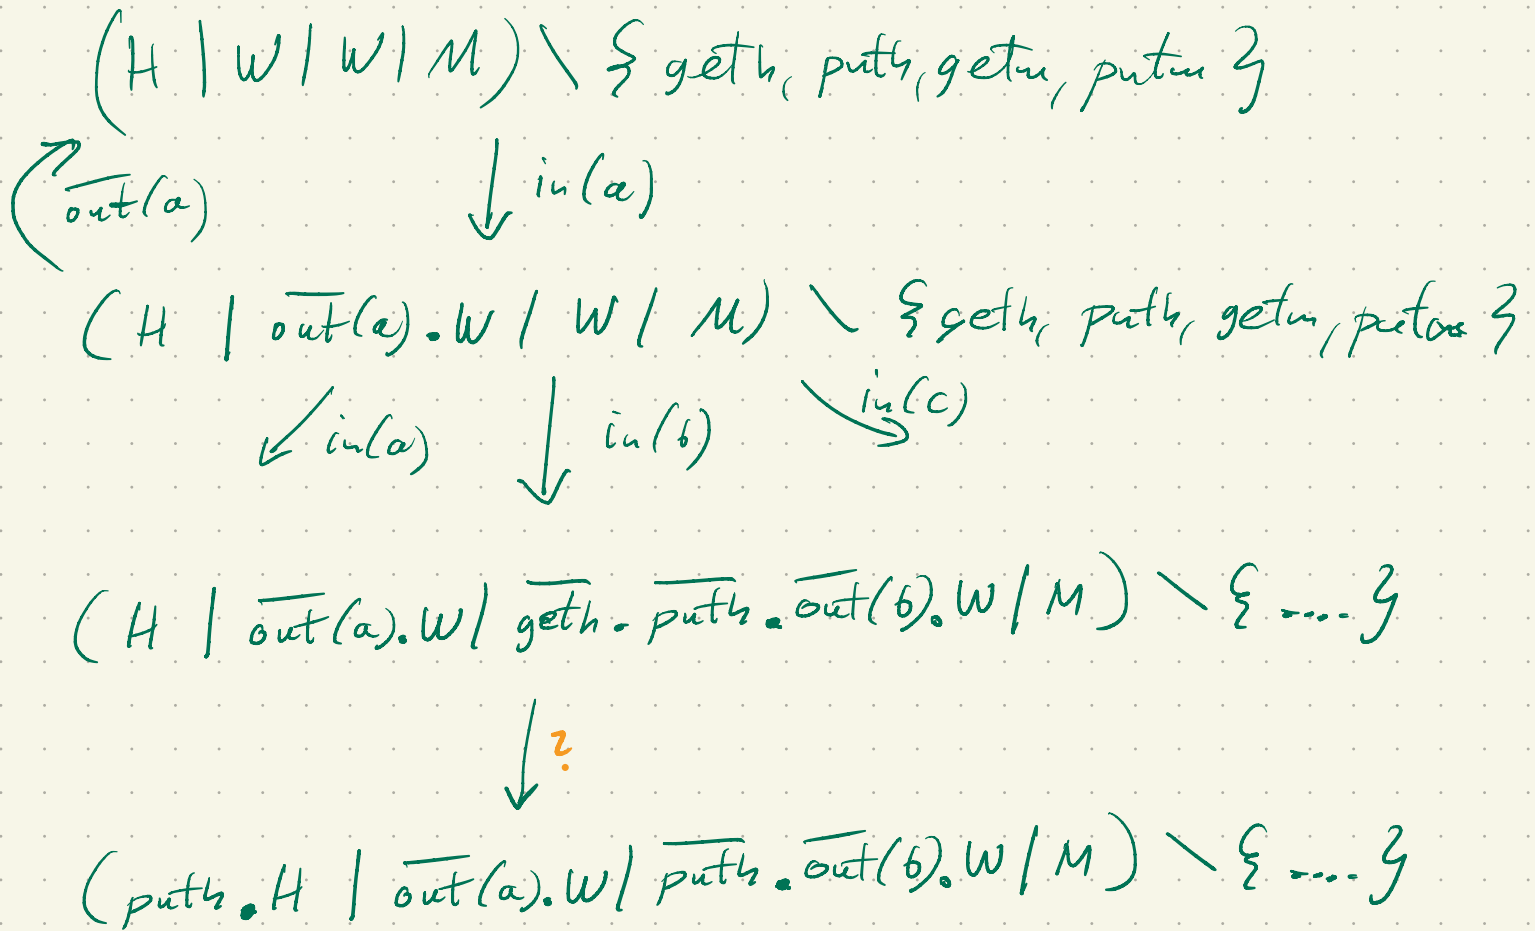 (H | W | W | M) \ { geth, puth, getm, putm }
o̅u̅t̅(a) ↓ in(a)
(H | o̅u̅t̅(a).W | W | M) \ {geth, puth, getm, putm }
in(a) ↓ in(b) in(c)
(H | o̅u̅t̅(a).W | g̅e̅t̅h̅.p̅u̅t̅h̅.o̅u̅t̅(b).W | M) \ {....}
↓ ?
(puth.H | o̅u̅t̅(a).W | p̅u̅t̅h̅.o̅u̅t̅(b).W | M) \ {....}